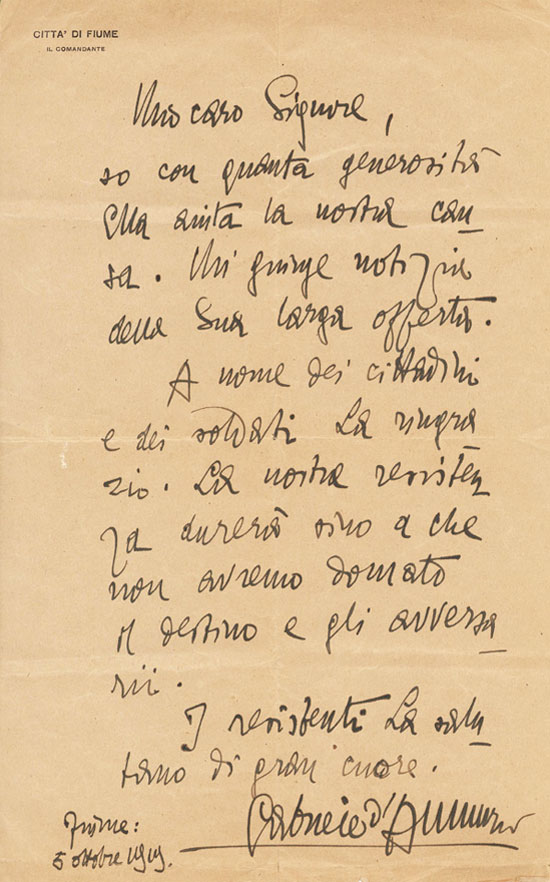 CITTA' DI FIUME
IL COMANDANTE
Mio caro Signore,
so con quanta generosità
Ella aiuta la nostra cau
sa. Mi giunge notizia
della Sua larga offerta.
A nome dei cittadini
e dei soldati La ringra
zio. La nostra resisten
za durerà sino a che
non avremo domato
il destino e gli avversa
rii.
I resistenti La salu
tano di gran cuore.
Gabriele d'Annunzio
Fiume:
5 ottobre 1919.